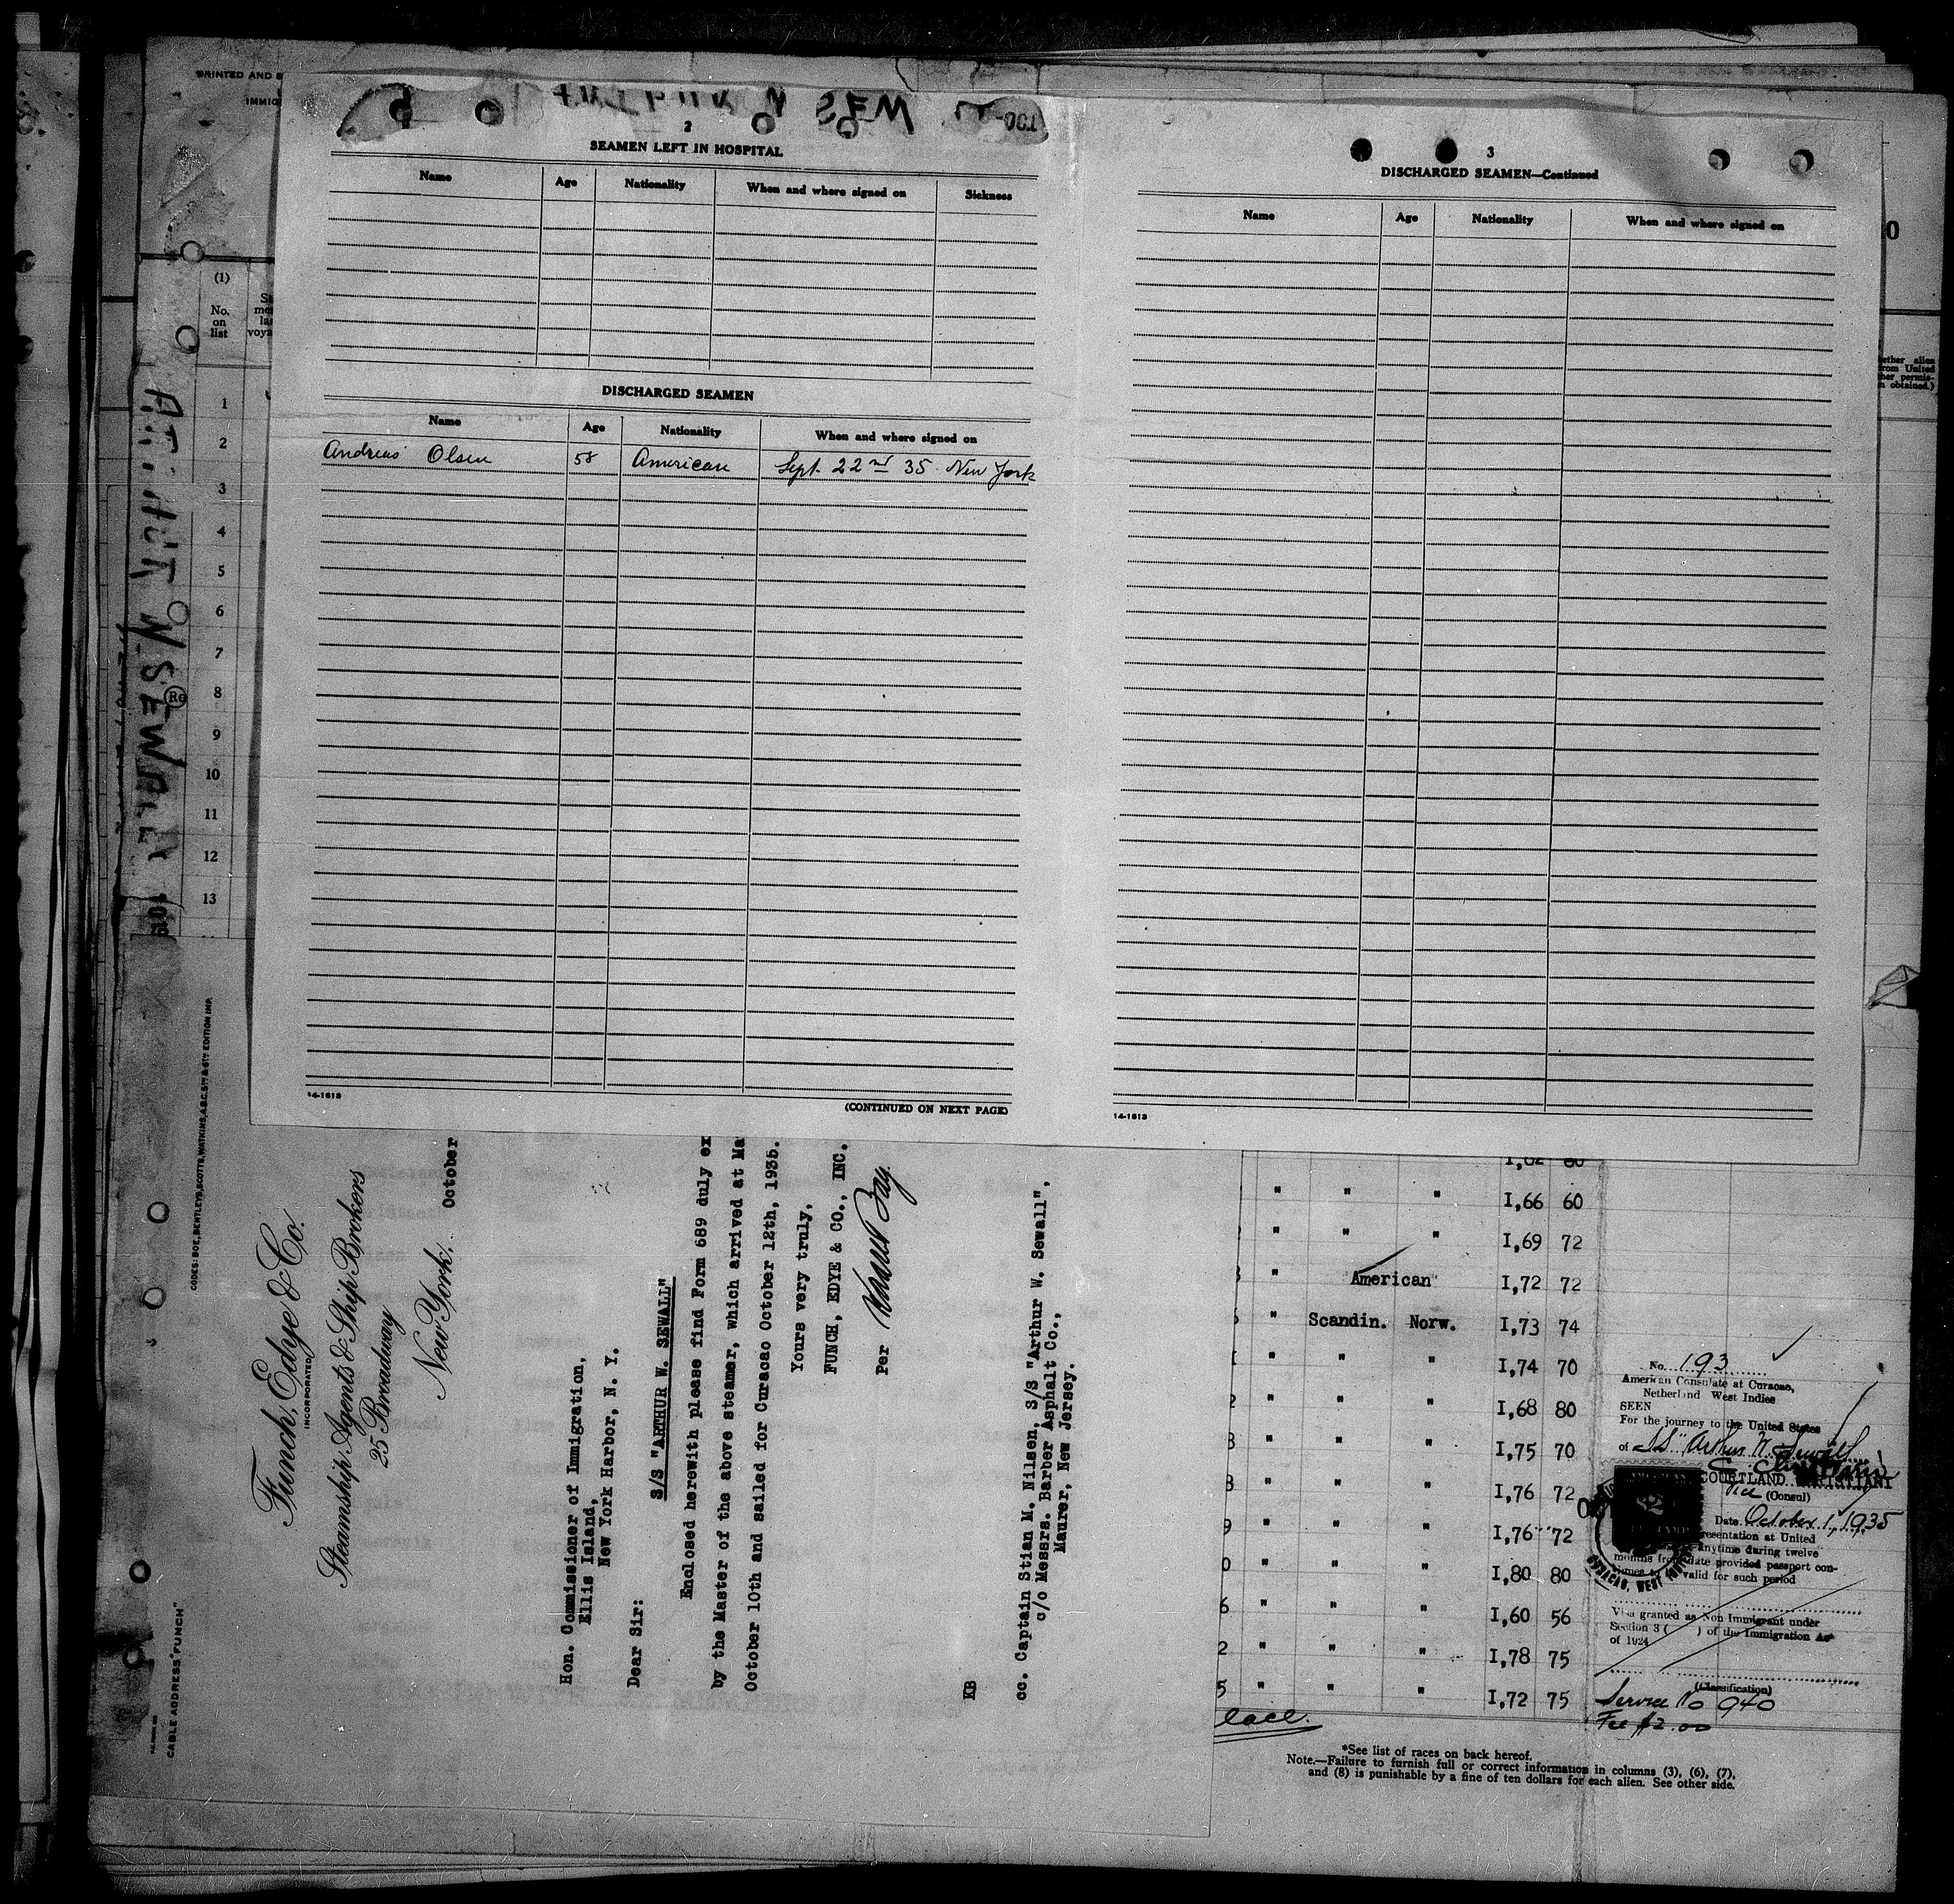 PRINTED AND
IMMIG
2
SEAMEN LEFT IN HOSPITAL
Name Age Nationality When and where signed on Sickness
DISCHARGED SEAMEN
Name Age Nationality When and where signed on
Andreas Olsen 58 American Sept. 22nd 35 New York
14-1613
(CONTINUED ON NEXT PAGE)
3
DISCHARGED SEAMEN—Continued
Name Age Nationality When and where signed on
14-1613
(1)
No.
on
list
voya
1
2
3
4
5
6
7
8
9
10
11
12
13
ARTHUR W SEWALL
0
ether alien
from United
her permis-
n obtained.)
CODES: BOE, BENTLEYS, SCOTTS, WATKINS, A.B.C. 5TH & 6TH EDITION IMP.
CABLE ADDRESS "FUNCH"
Funch, Edye & Co.
INCORPORATED
Steamship Agents & Ship Brokers
25 Broadway
New York,
October
Hon. Commissioner of Immigration,
Ellis Island,
New York Harbor, N. Y.
Dear Sir:
S/S "ARTHUR W. SEWALL"
Enclosed herewith please find Form 689 duly ex
by the Master of the above steamer, which arrived at Ma
October 10th and sailed for Curacao October 12th, 1935.
Yours very truly,
FUNCH, EDYE & CO., INC.
Per
KB
cc. Captain Stian M. Nilsen, S/S "Arthur W. Sewall",
c/o Messrs. Barber Asphalt Co.,
Maurer, New Jersey.
1,62 60
" " " 1,66 60
" " " 1,69 72
" American 1,72 72
" Scandin. Norw. 1,73 74
" " " 1,74 70
2 " " " 1,68 80
3 " " " 1,75 70
3 " " " 1,76 72
9 " " " 1,76 72
0 " " " 1,80 80
6 " " " 1,60 56
2 " " " 1,78 75
5 " " " 1,72 75
No. 193
American Consulate at Curacao,
Netherland West Indies
SEEN
For the journey to the United States
of SS "Arthur W. Sewall"
COURTLAND CHRISTIANI
Vice (Consul)
Date October 1, 1935
resentation at United
anytime during twelve
months from date provided passport con-
tinues to be valid for such period
Visa granted as Non Immigrant under
Section 3 ( ) of the Immigration Act
of 1924
(Classification)
Service No 940
Fee $2.00
CURACAO, WEST INDIES
*See list of races on back hereof.
Note.—Failure to furnish full or correct information in columns (3), (6), (7),
and (8) is punishable by a fine of ten dollars for each alien. See other side.